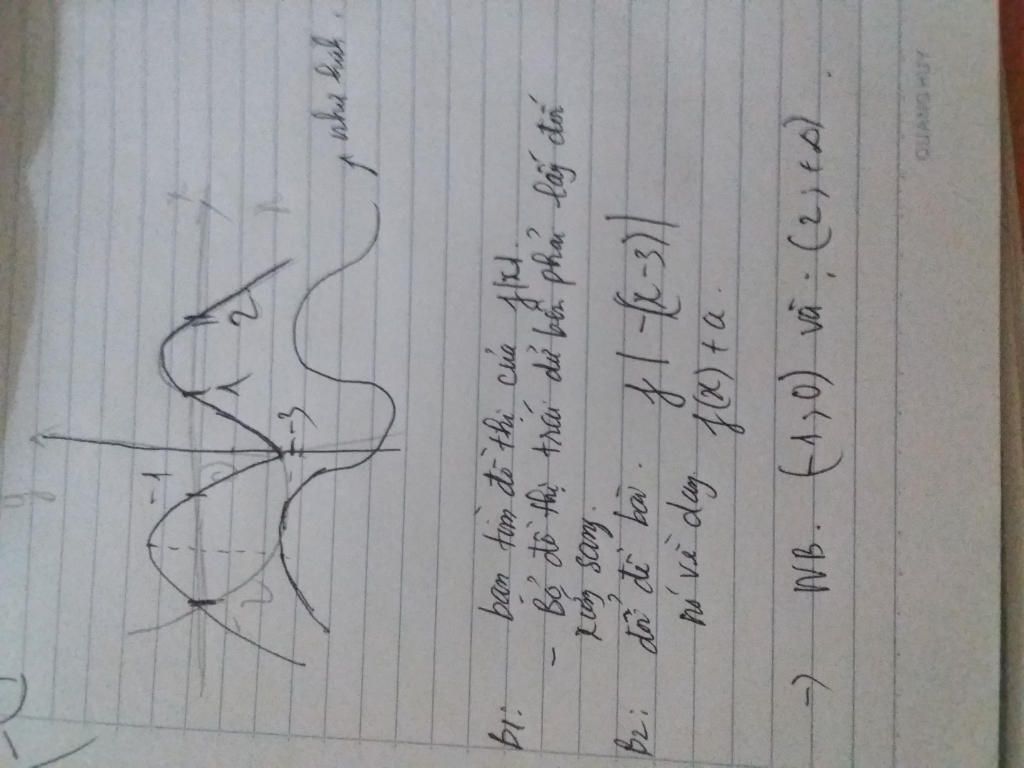 y
-1
1
2
-3
như hình.
B1: bạn tìm đồ thị của f|x|.
- Bỏ đồ thị trái dữ bên phải lấy đối
xứng sang.
B2: đổi đề bài. f|-(x-3)|
nó về dạng f(x)+a.
-) NB. (-1,0) và: (2,+∞).
QUANG HUY